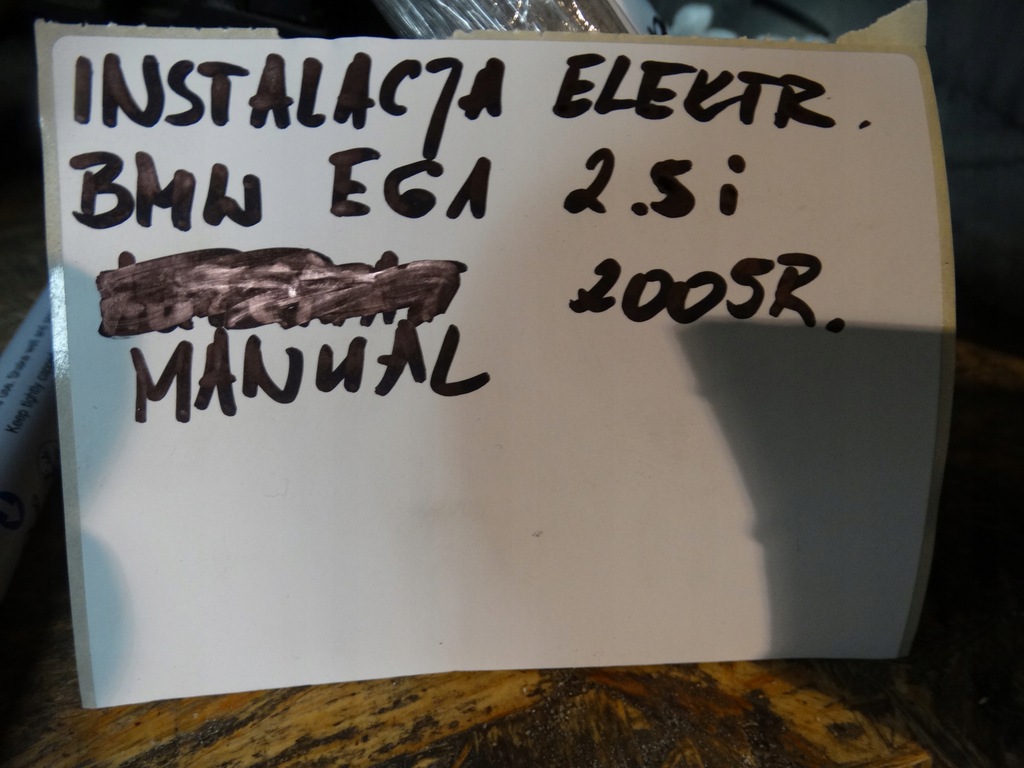 INSTALACJA ELEKTR.
BMW E61 2.5i
2005R.
MANUAL
Keep tightly